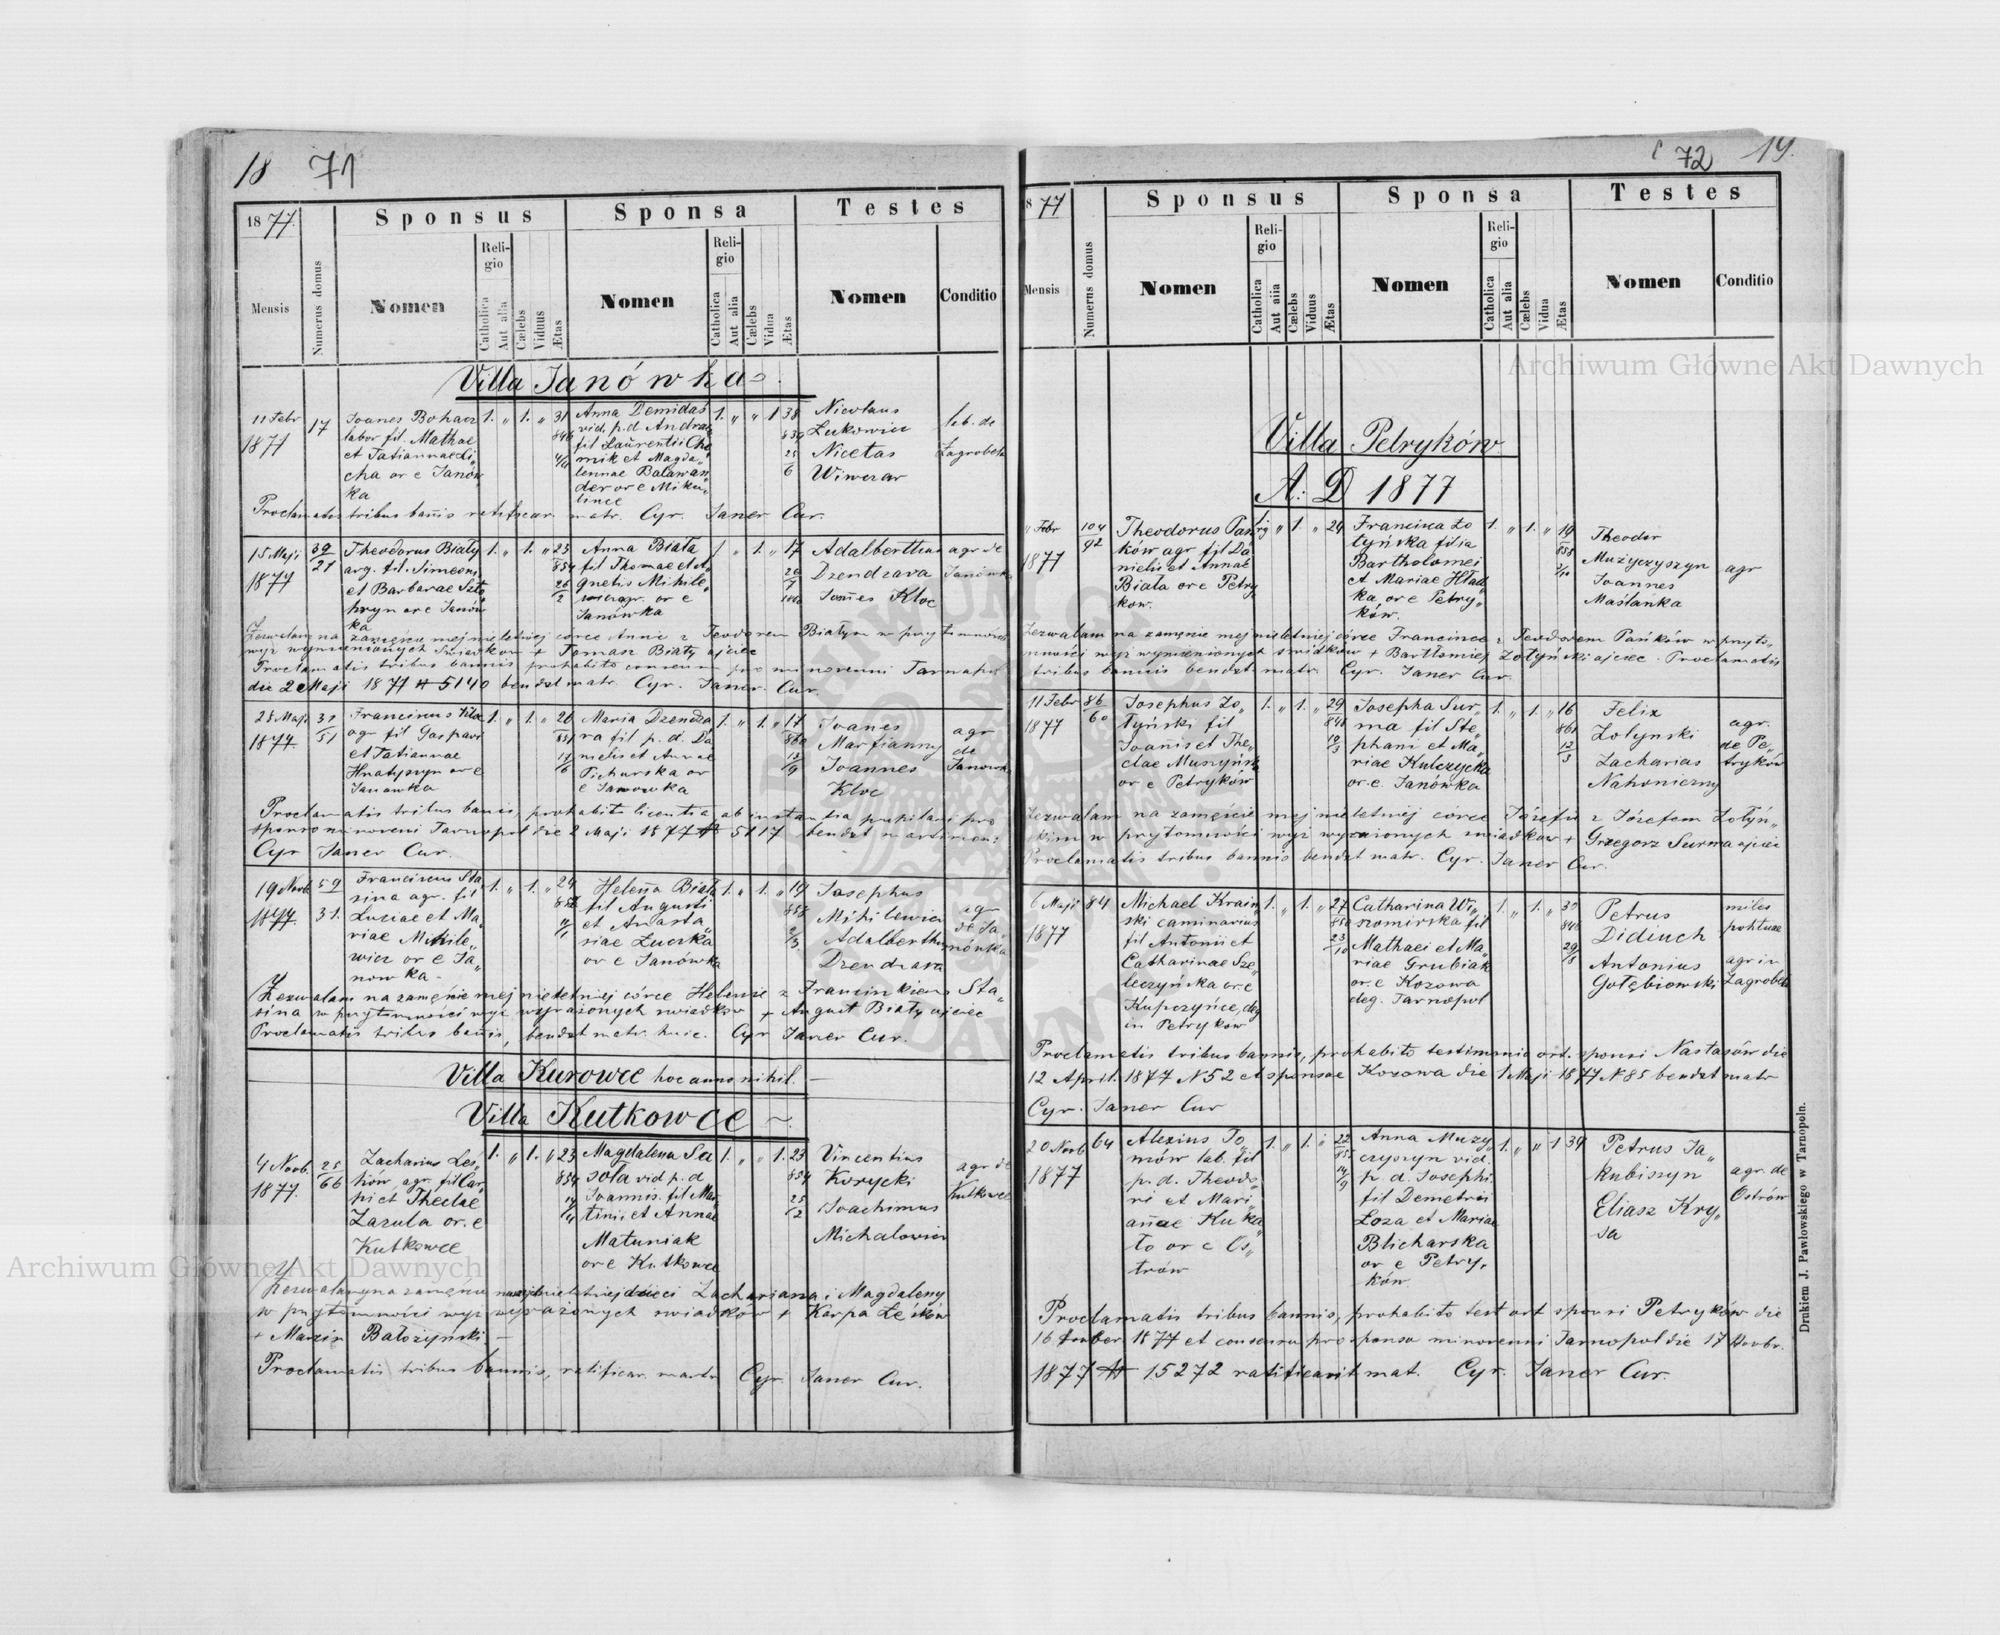 18 71
1877.
Sponsus
Sponsa
Testes
Mensis
Numerus domus
Nomen
Religio
Catholica
Aut alia
Cælebs
Viduus
Ætas
Nomen
Religio
Catholica
Aut alia
Cælebs
Vidua
Ætas
Nomen
Conditio
Villa Janówka
11 Febr
1877
17
Joanes Bohacz
labor fil. Mathae
et Tatiannae
cha or e Janów
ka
1. „ 1. „ 31
Anna Demidas
vid. p.d Andreae
fil Laurentii
mik et Magda„
lennae
der or e Miku„
lince
1. „ „ 1 38
Nicolaus
Lukowicz
Nicetas
Wiwczar
lab. de
Zagrobela
Proclamatis tribus bannis ratificav. matr. Cyr. Janer Cur.
15 Maji
1877
39
21
Theodorus Biały
agr. fil. Simeoni
et Barbarae
hryn or e Janów
ka
1. „ 1. „ 23
854
26
2
Anna Biała
fil Thomae et A„
gnetis Mihile„
agr. or e
Janówka
1 „ 1. „ 17
Adalberthus
Dzendzava
Joanes Kloc
agr de
Janówka
Zezwalam na zamęście mej nieletniej córce Annie z Teodorem Białym w przytomności
wyż wymienionych świadków + Tomasz Biały ojciec
Proclamatis tribus bannis prohabito consensu pro minorenni Tarnopol
die 2 Maji 1877 № 5140 bendxt matr. Cyr. Janer. Cur.
28 Maji
1877.
31
51
Franciscus Kloc
agr fil Gaspari
et Tatiannae
Hnatyszyn or e
Janowka
1. „ 1. „ 26
851
Maria Dzendza
ra fil p. d. Da
nielis et Annae
Pichurska or
e Janowka
1. „ 1. „ 17
860
Joanes
Marfianny
Joannes
Kloc
agr
de
Janowka
Proclamatis tribus bannis, prohabita licentia ab instantia pupilari pro
sponso minoreni Tarnopol die 2 Maji 1877 № 5117 bendxt
Cyr Janer Cur.
19 Novb
1877.
59
31.
Franciscus Sta
sina agr. fil
Lucae et Ma„
riae Mihile„
wicz or e Ja„
nowka
1. „ 1. „ 24
Helena Biała
fil Augusti
et Anasta„
siae Luczka
or e Janówka
1. „ 1. „ 19
858
2
3
Josephus
Mihilewicz
Adalberthus
Dzendzava
agr
de Ja„
nówka
Zezwalam na zamęście mej nieletniej córce Helenie z Francinkiem Sta„
sina w przytomności wyż wyrażonych swiadków + August Biały ojciec
Proclamatis tribus bannis, bendxt matr. Cyr Janer Cur.
Villa Kurowce hoc anno nihil.
Villa Kutkowce
4 Novb.
1877.
25
66
Zacharius Leś„
ków agr. fil Car„
pi et Theclae
Zazula or. e
Kutkowce
1. „ 1. „ 23
854
Magdalena Sa
sola vid p. d
Joannis. fil Mar„
tini et Annae
Matuniak
or e Kutkowce
1. „ „ 1. 23
854
25
2
Vincentius
Korycki
Joachimus
Michalowicz
agr de
Kutkowce
Zezwalamy na zamęście nieletniej dzieci Zachariana i Magdaleny
w przytomności wyż wyrażonych swiadków + Karpa Leśków
+ Marcin Bałozyński
Proclamatis tribus bannis, ratificav. matr Cyr. Janer Cur.
72 19.
1877
Sponsus
Sponsa
Testes
Mensis
Numerus domus
Nomen
Religio
Catholica
Aut alia
Cælebs
Viduus
Ætas
Nomen
Religio
Catholica
Aut alia
Cælebs
Vidua
Ætas
Nomen
Conditio
Villa Petryków
A: D 1877
„ Febr
1877
104
92
Theodorus Pań„
ków agr fil Da„
nielis et Annae
Biała or e Petry„
kow.
„ 1. „ 24
Francisca Zo
tyńska filia
Bartholomei
et Mariae Hład
ka or e Petry„
ków.
1. „ 1. „ 19
858
Theodor
Muzyczyszyn
Joannes
Maślanka
agr
Zezwalam na zamęście mej nieletniej córce Francisce z Teodorem Pańków w przyto„
mności wyż wymienionych swidków + Bartłomiej Zołyński ojciec. Proclamatis
tribus bannis bendxt matr. Cyr. Janer Cur.
11 Febr
1877
86
60
Josephus Zo„
łyński fil
Joanis et The„
clae Muszyńsk
or e Petryków
1. „ 1. „ 29
848
10
3
Josepha Sur„
ma fil Ste„
phani et Ma„
riae Kulczycka
or. e. Janówka
1. „ 1. „ 16
861
12
3
Felix
Zolynski
Zacharias
Nahoniczny
agr.
de Pe„
tryków
Zezwalam na zamęście mej nieletniej córce Józefie z Józefem Zołyń„
skim w przytomności wyż wyrażionych swiadków + Grzegorz Surma ojciec
Proclamatis tribus bannis bendxt matr. Cyr. Janer Cur.
6 Maji
1877
84
Michael Krain„
ski caminarius
fil Antonii et
Catharinae Sze„
leczyńska or. e
Kupczyńce, deg
in Petryków
1. „ 1. „ 27
850
23
10
Catharina Wi„
szomirska fil
Mathaei et Ma„
riae Grubiak
or. e Kozowa
deg. Tarnopol
1. „ 1. „ 30
Petrus
Didiuch
Antonius
Gołębiowski
miles
agr in
Zagrobela
Proclamatis tribus bannis, prohabito testimonio ort. sponsi Nastasów die
12 April. 1877 N 52 et sponsae Kozowa die 1 Maji 1877 N 85 bendxt matr
Cyr. Janer Cur
20 Novb
1877
64
Alexius To„
mów lab. fil
p. d. Theodo„
ri et Mari„
annae Kuka„
ło or e Os„
trów
1. „ 1. „ 22
855
Anna Muzy„
czyszyn vid.
p. d. Josephi
fil Demetrii
Łoza et Mariae
Blicharska
or e Petry„
ków
1. „ „ 1 39
Petrus Ja„
kubiszyn
Eliasz Kry„
sa
agr. de
Ostrów
Proclamatis tribus bannis, prohabito test ort sponsi Petryków die
16 1877 et consensu pro sponso minorenni Tarnopol die 17 Novbr.
1877 № 15272 ratificavit mat. Cyr. Janer Cur.
Drukiem J. Pawłowskiego w Tarnopolu.
Archiwum Główne Akt Dawnych
Archiwum Główne Akt Dawnych